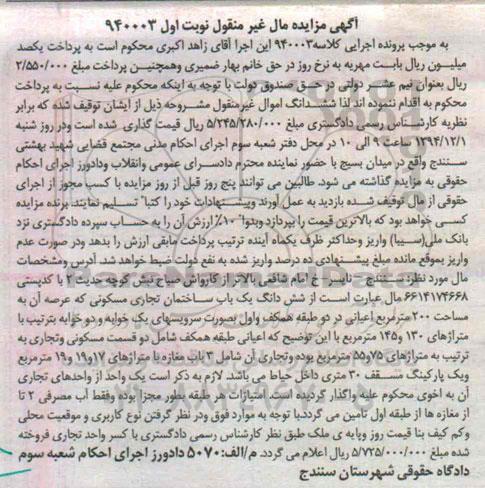 آگهی مزایده مال غیر منقول نوبت اول ۹۴۰۰۰۳
به موجب پرونده اجرایی کلاسه۹۴۰۰۰۳ این اجرا آقای زاهد اکبری محکوم است به پرداخت یکصد
میلیون ریال بابت مهریه به نرخ روز در حق خانم بهار ضمیری وهمچنین پرداخت مبلغ ۲/۵۵۰/۰۰۰
ریال بعنوان نیم عشر دولتی در حق صندوق دولت با توجه به اینکه محکوم علیه نسبت به پرداخت
محکوم به اقدام ننموده اند لذا ششدانگ اموال غیرمنقول مشروحه ذیل از ایشان توقیف شده که برابر
نظریه کارشناس رسمی دادگستری مبلغ ۵/۲۴۵/۲۸۰/۰۰۰ ریال قیمت گذاری شده است ودر روز شنبه
۱۳۹۴/۱۲/۱ ساعت ۹ الی ۱۰ در محل دفتر شعبه سوم اجرای احکام مدنی مجتمع قضایی شهید بهشتی
سنندج واقع در میدان بسیج با حضور نماینده محترم دادسرای عمومی وانقلاب ودادورز اجرای احکام
حقوقی به مزایده گذاشته می شود. طالبین می توانند پنج روز قبل از روز مزایده با کسب مجوز از اجرای
حقوقی از مال توقیف شده بازدید به عمل آورند وپیشنهادات خود را کتبا" تسلیم نمایند. برنده مزایده
کسی خواهد بود که بالاترین قیمت را بپردازد وبدوا" ۱۰٪ ارزش آن را به حساب سپرده دادگستری نزد
بانک ملی(سیبا) واریز وحداکثر ظرف یکماه آینده ترتیب پرداخت مابقی ارزش را بدهد ودر صورت عدم
واریز بموقع مانده مبلغ پیشنهادی ده درصد واریز شده به نفع دولت ضبط خواهد شد. آدرس ومشخصات
مال مورد نظر: سنندج – نایسر – خ امام شافعی بالاتر از کارواش صباح نبش کوچه حدیث ۲ با کدپستی
۶۶۱۴۱۷۴۶۶۸ مال عبارت است از شش دانگ یک باب ساختمان تجاری مسکونی که عرصه آن به
مساحت ۲۰۰ مترمربع اعیانی در دو طبقه همکف واول بصورت سرویسهای یک خوابه ودو خوابه بترتیب با
متراژهای ۱۳۰ و۱۴۵ مترمربع با این توضیح که اعیانی طبقه همکف شامل دو قسمت مسکونی وتجاری به
ترتیب به متراژهای ۷۵ و۵۵ مترمربع بوده وتجاری آن شامل ۳ باب مغازه با متراژهای ۱۷و۱۹ و۱۹ مترمربع
ویک پارکینگ مسقف ۳۰ متری داخل حیاط می باشد. لازم به ذکر است یک واحد از واحدهای تجاری
آن به اخوی محکوم علیه واگذار گردیده است. امتیازات هر طبقه بطور مجزا بوده وفقط آب مصرفی ۲ تا
از مغازه ها از طبقه اول تامین می گردد.با توجه به موارد فوق ودر نظر گرفتن نوع کاربری و موقعیت محلی
وکم کیف بنا قیمت روز وپایه ی ملک طبق نظر کارشناس رسمی دادگستری با کسر واحد تجاری فروخته
شده مبلغ ۵/۷۲۵/۰۰۰/۰۰۰ ریال اعلام می گردد. م/الف:۵۰۷۰ دادورز اجرای احکام شعبه سوم
دادگاه حقوقی شهرستان سنندج